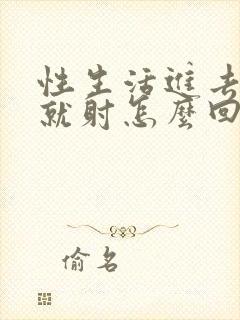 性生活進去
就射怎麼回
偷名